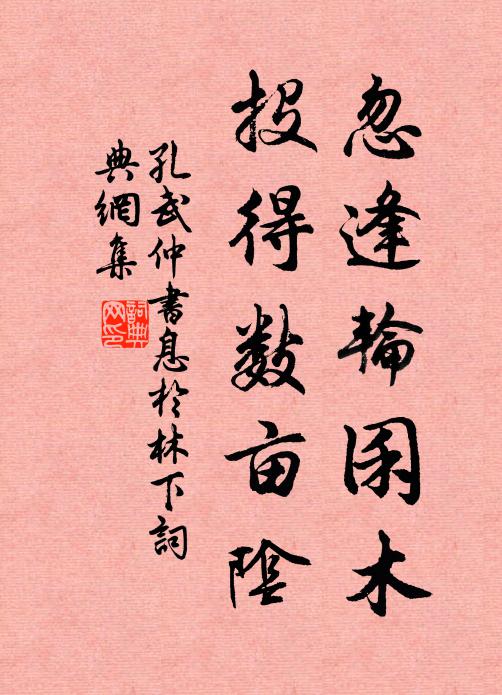 忽逢輪囷木
投得数亩陰
孔武仲書息於林下詞
典網集
詞典
网印